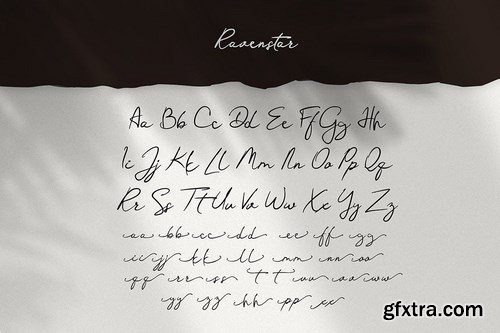 Ravenstar
Aa Bb Cc Dd Ee Ff Gg Hh
Ii Jj Kk Ll Mm Nn Oo Pp Qq
Rr Ss Tt Uu Va Ww Xx Yy Zz
aa bb cc dd ee ff gg
ii jj kk ll mm nn oo
qq rr ss tt uu vv ww
yy zz hh pp cc
gfxtra.com